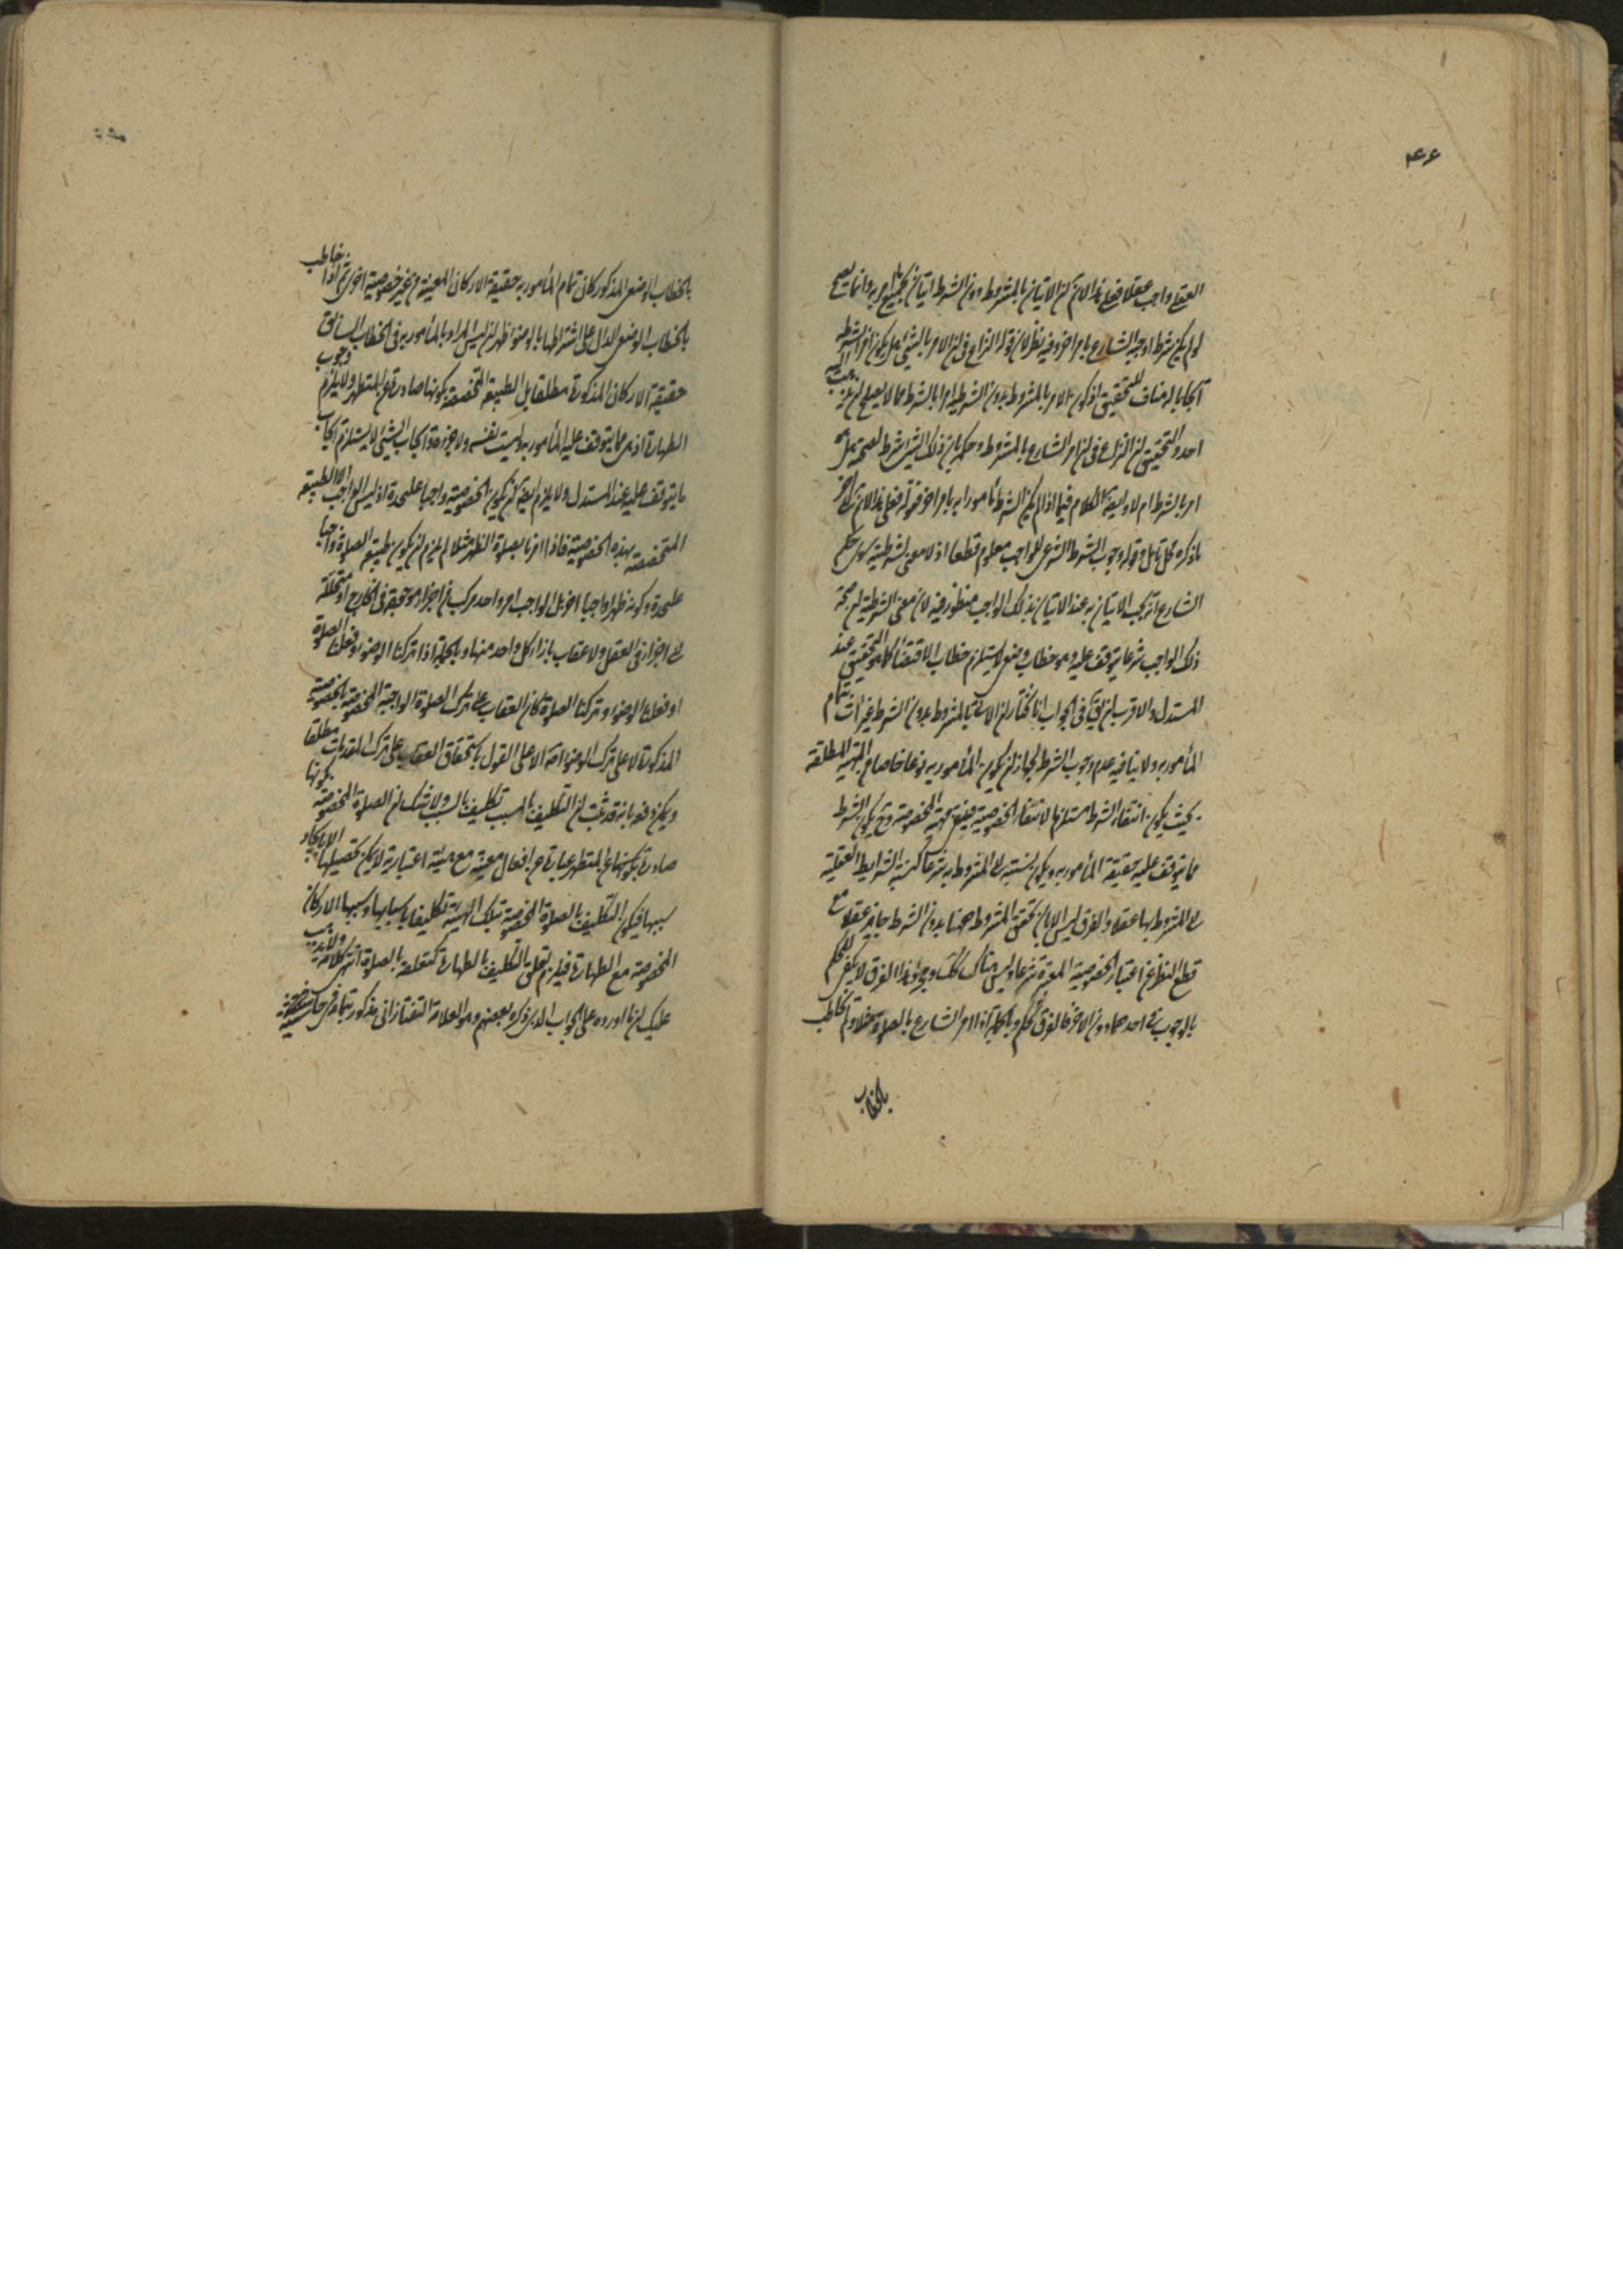 ۴۶
العقلي واجب عقلا فعلى هذا لانم ان الاتيان بالمشروط دون الشرط اتيان بجميع المأمور به وانما يصح
لو لم يكن شرطا اوجبه الشارع بامر اخر وفيه نظر لان قوله النزاع في ان الامر بالشئ هل يكون امرا بشرطه
ايجابا له مناف للتحقيق اذ كون الامر بالمشروط بدون الشرط امرا بالشرط مما لا يصلح ان
احد والتحقيق ان النزاع في ان امر الشارع بالمشروط وحكم بان ذلك الشئ شرط لصحته هل هو
امر بالشرط ام لا وايضا الكلام فيما اذا لم يكن الشرط مأمورا به بامر اخر فقوله فعلى هذا لانم الى اخر
ما ذكره محل تامل وقوله وجوب الشرط الشرعي للواجب معلوم قطعا اذ لا معنى لشرطيته سوى حكم
الشارع انه يجب الاتيان به عند الاتيان بذلك الواجب منظور فيه لان معنى الشرطية ان صحة
ذلك الواجب شرعا يتوقف عليه وهو خطاب وضع لا يستلزم خطاب الاقتضاء كما هو التحقيق عند
المستدل والاقرب ان يق في الجواب انا نختار ان الاتي بالمشروط بدون الشرط غير ات بتمام
المأمور به ولا ينافيه عدم وجوب الشرط لجواز ان يكون المأمور به نوعا خاصا من المهية المطلقة
بحيث يكون انتفاء الشرط مستلزما لانتفاء الخصوصية فينتفي المهية المخصوصة وح يكون الشرط
مما يتوقف عليه حقيقة المأمور به ويكون نسبته الى المشروط به شرعا كنسبة الشرايط العقلية
الى المشروط بها عقلا والفرق ليس الا بان تحقق المشروط ههنا بدون الشرط جايز عقلا مع
قطع النظر عن اعتبار الخصوصية المعتبرة شرعا وليس هناك كذلك ومجرد هذا الفرق لا يكفي للحكم
بالوجوب في احدهما دون الاخر فالفرق تحكم وبالجملة اذا امر الشارع بالصلوة مثلا ولم يخاطب
بالخطاب
بالخطاب الوضعي المذكور كان تمام المأمور به حقيقة الاركان المعينة من غير خصوصية اخرى ثم اذا خاطب
بالخطاب الوضعي الدال على اشتراطها بالوضوء ظهر ان ليس المراد بالمأمور به في الخطاب السابق
حقيقة الاركان المذكورة مطلقا بل الطبيعة المخصصة بكونها صادرة عن المتطهر ولا يلزم وجوب
الطهارة اذ هي مما يتوقف عليه المأمور به وليست نفسه ولا جزءه وايجاب الشئ لا يستلزم ايجاب
ما يتوقف عليه عند المستدل ولا يلزم ايضا ان يكون الخصوصية واجبا عليحدة اذ ليس الواجب الا الطبيعة
المتخصصة بهذه الخصوصية فاذا امرنا بصلوة الظهر مثلا لم يلزم ان يكون طبيعة الصلوة واجبا
عليحدة وكونه ظهرا واجبا اخر بل الواجب امر واحد مركب من اجزاء موجودة في الخارج او متحللة
الى اجزاء في العقل ولا عقاب بازاء كل واحد منها وبالجملة اذا تركنا الوضوء وفعلنا الصلوة
او فعلنا الوضوء وتركنا الصلوة كان العقاب على ترك الصلوة الواجبة المخصوصة بالخصوصية
المذكورة لا على ترك الوضوء الا على القول باستحقاق العقاب على ترك المقدمات مطلقا
ويمكن دفعه بانه قد ثبت ان التكليف بالمسبب تكليف بالسبب ولا شك ان الصلوة المخصوصة بكونها
صادرة عن المتطهر عبارة عن افعال معينة مع هيئة اعتبارية لا يمكن تحصيلها الا بايجاد
سببها فيكون التكليف بالصلوة المخصوصة بتلك الهيئة تكليفا باسبابها وسببها الاركان
المخصوصة مع الطهارة فيلزم تعلق التكليف بالطهارة كتعلقه بالصلوة انتهى كلامه ولا يذهب
عليك ان ما اورده على الجواب الذي ذكره بعضهم وهو العلامة التفتازاني مذكور بتمامه في حاشية